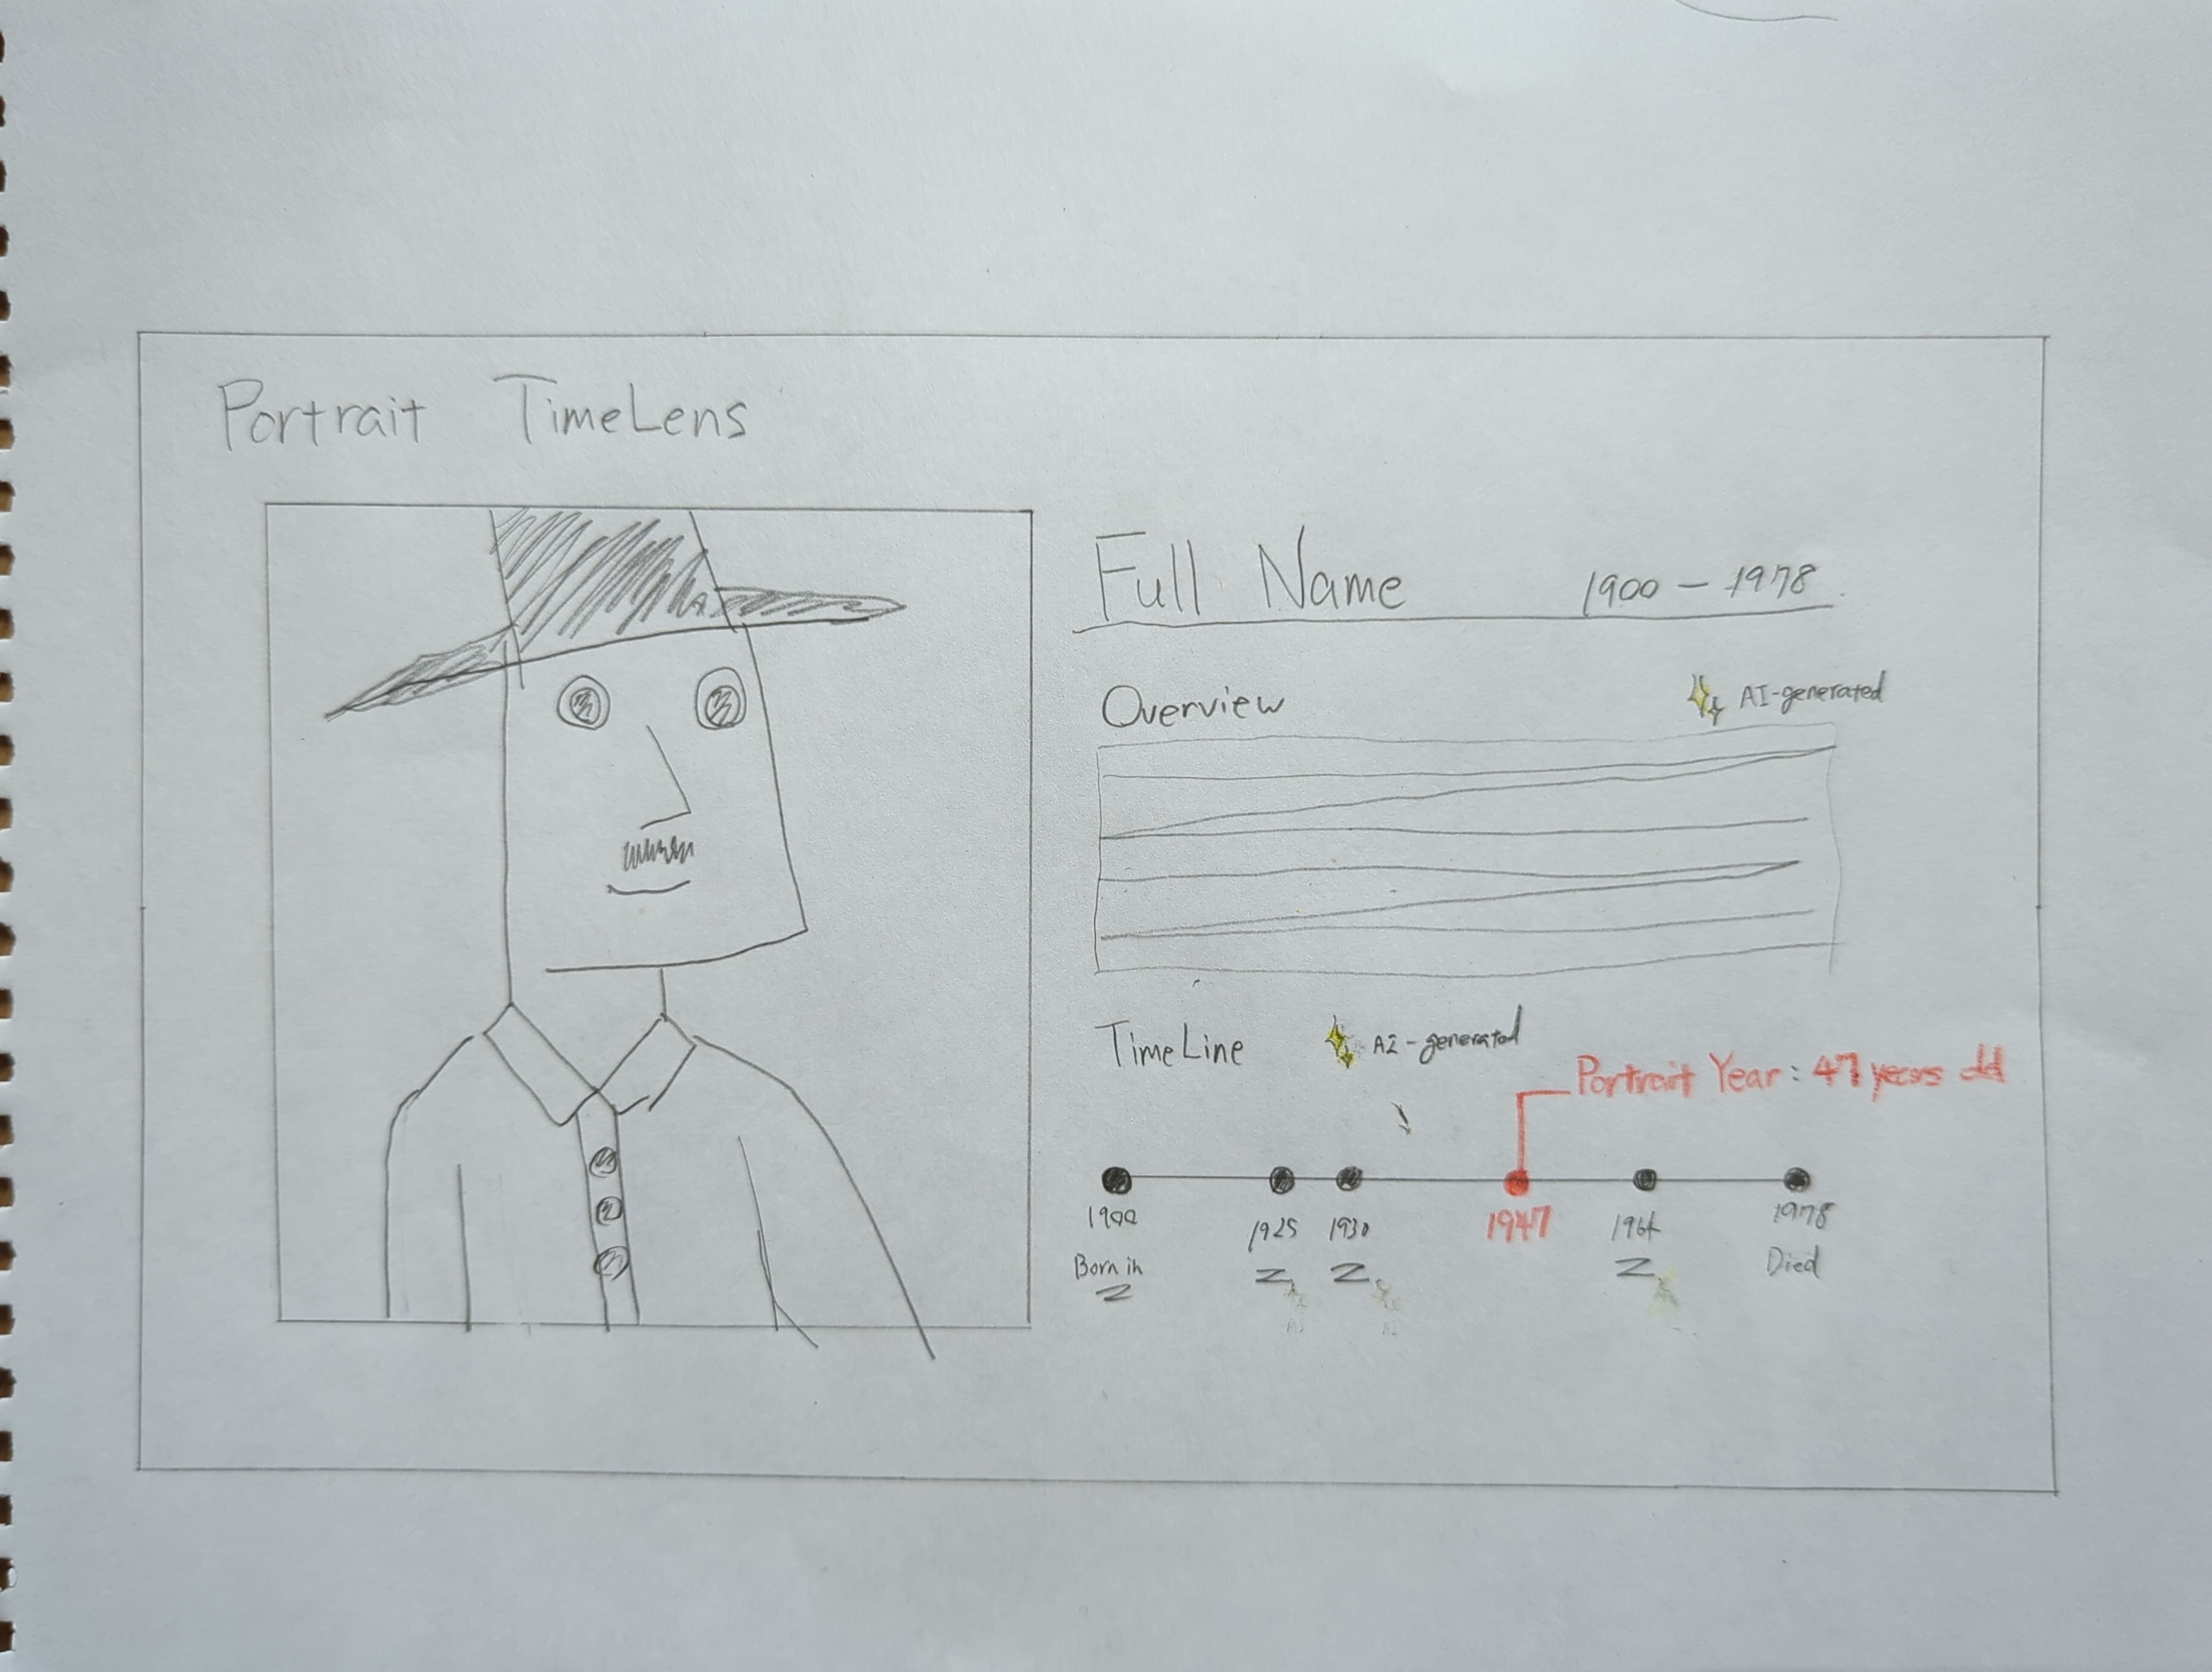 Portrait TimeLens
Full Name 1900 - 1978
Overview AI-generated
TimeLine AI-generated
Portrait Year: 47 years old
1900 1925 1930 1947 1964 1978
Born in Died